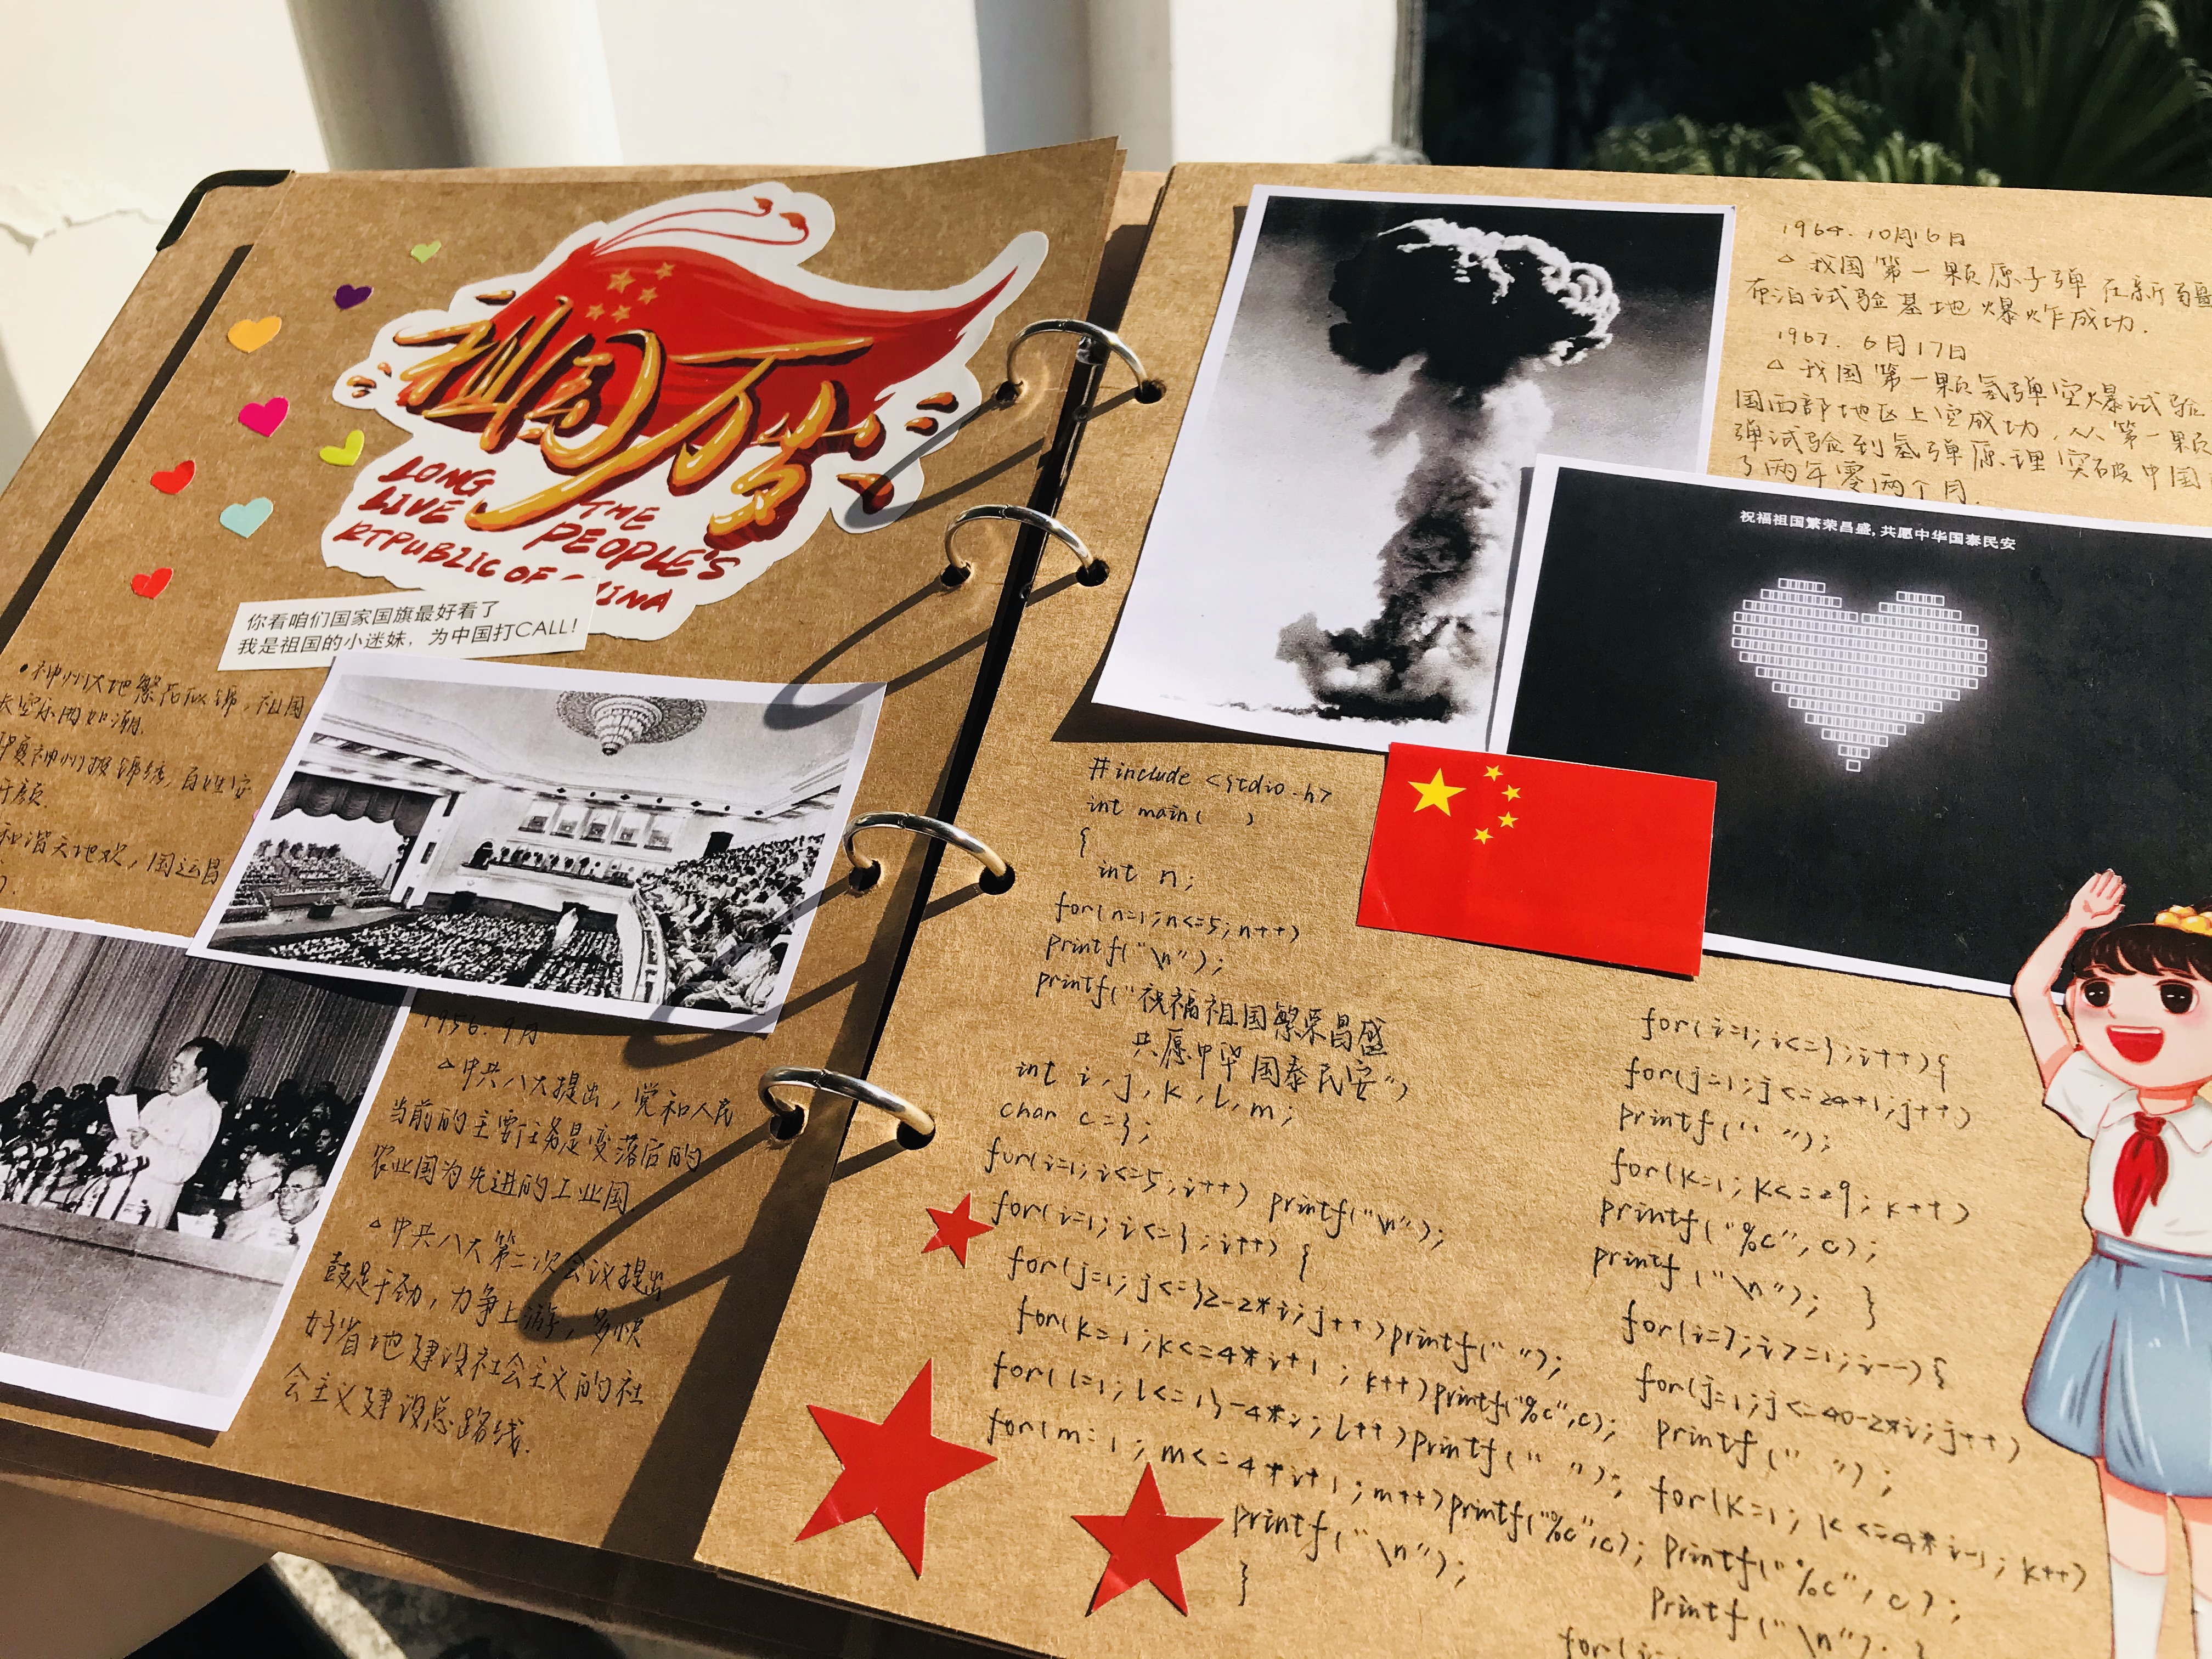 祖国万岁
LONG
LIVE THE
PEOPLE'S
RTPUBLIC OF INA
你看咱们国家国旗最好看了
我是祖国的小迷妹，为中国打CALL！
•神州大地繁花似锦，祖国
长空乐曲如潮.
神州披锦绣，百姓安
开颜.
和谐天地欢，国运昌
1956. 9月
△中共八大提出，党和人民
当前的主要任务是变落后的
农业国为先进的工业国.
△中共八大第二次会议提出
鼓足干劲，力争上游，多快
好省地建设社会主义的社
会主义建设总路线.
1964. 10月16日
△ 我国第一颗原子弹在新疆
布泊试验基地爆炸成功.
1967. 6月17日
△ 我国第一颗氢弹空爆试验
国西部地区上空成功，从第一颗
弹试验到氢弹原理突破中国
了两年零两个月.
祝福祖国繁荣昌盛，共愿中华国泰民安
#include <stdio.h>
int main( )
{
int n;
for(n=1;n<=5;n++)
printf("\n");
printf("祝福祖国繁荣昌盛
共愿中华国泰民安")
int i,j,k,l,m;
char c=3;
for(i=1;i<=5;i++) printf("\n");
for(i=1;i<=3;i++) {
for(j=1;j<=32-2*i;j++)printf(" ");
for(k=1;k<=4*i+1;k++)printf("%c",c);
for(l=1;l<=13-4*i;l++)printf(" ");
for(m=1;m<=4*i+1;m++)printf("%c",c);
printf("\n");
}
for(i=1;i<=3;i++){
for(j=1;j<=24+1;j++)
printf(" ");
for(k=1;k<=29;k++)
printf("%c",c);
printf("\n"); }
for(i=7;i>=1;i--){
for(j=1;j<=40-2*i;j++)
printf(" ");
for(k=1;k<=4*i-1;k++)
printf("%c",c);
printf("\n"); }
for(i=